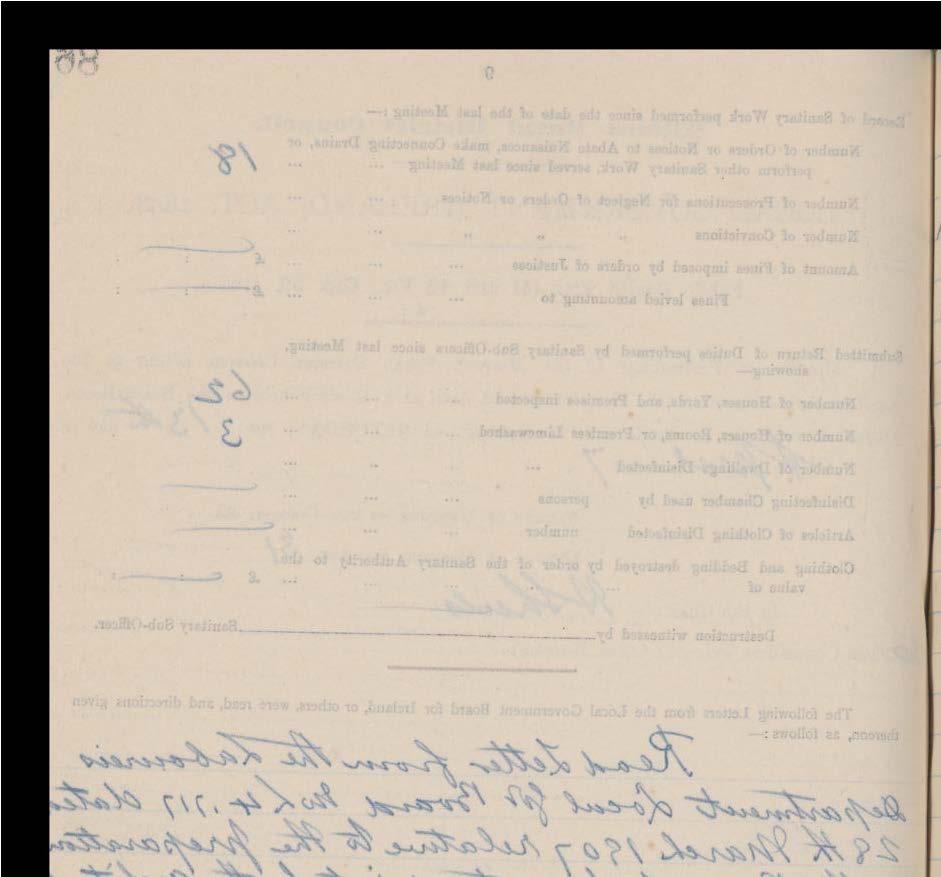 86
6
Record of Sanitary Work performed since the date of the last Meeting :—
Number of Orders or Notices to Abate Nuisances, make Connecting Drains, or
perform other Sanitary Work, served since last Meeting ... ... 18
Number of Prosecutions for Neglect of Orders or Notices ... ...
Number of Convictions " " " ... ...
Amount of Fines imposed by orders of Justices ... ... ... £ : :
Fines levied amounting to ... ... ... £ : :
Submitted Return of Duties performed by Sanitary Sub-Officers since last Meeting,
showing—
Number of Houses, Yards, and Premises inspected ... ... ... 62
Number of Houses, Rooms, or Premises Limewashed ... ... ... 3
Number of Dwellings Disinfected ... ... ...
Disinfecting Chamber used by persons ... ... ...
Articles of Clothing Disinfected number ... ... ...
Clothing and Bedding destroyed by order of the Sanitary Authority to the
value of ... ... ... ... £ : :
Destruction witnessed by Sanitary Sub-Officer.
The following Letters from the Local Government Board for Ireland, or others, were read, and directions given
thereon, as follows :—
Read Letter from the Labourers
Department Local Gov Board dated
28th March 1907 relative to the preparation